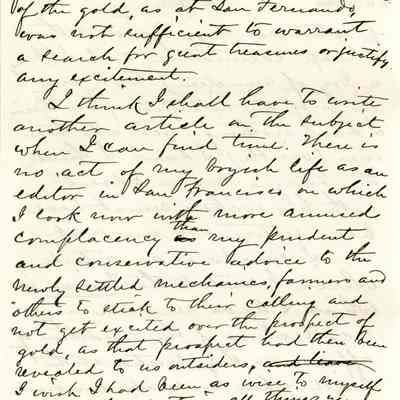 of the gold, as at San Fernando,
was not sufficient to warrant
a search for great treasures or justify
any excitement.
I think I shall have to write
another article on the subject
when I can find time. There is
no act of my boyish life as an
editor in San Francisco on which
I look now with more amused
complacency than my prudent
and conservative advice to the
newly settled mechanics, farmers and
others to stick to their calling and
not get excited over the prospect of
gold, as that prospect had then been
revealed to us outsiders, and leave
I wish I had been as wise to myself
all things